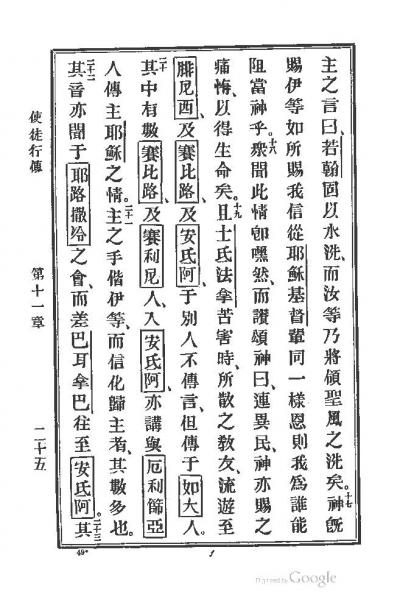 主之言曰、若翰固以水洗、而汝等乃將領聖風之洗矣。十七神旣
賜伊等如所賜我信從耶穌基督輩同一樣恩則我爲誰能
阻當神乎。十八衆聞此情卽嘿然、而讚頌神曰、連異民、神亦賜之
痛悔、以得生命矣。十九且士氐法拿苦害時、所散之敎友、流遊至
腓尼西、及賽比路、及安氐阿、于別人不傳言、但傳于如大人。
二十其中有數賽比路、及賽利尼人、入安氐阿、亦講與厄利篩亞
人傳主耶穌之情。二十一主之手偕伊等、而信化歸主者、其數多也。
二十二其音亦聞于耶路撒冷之會、而差巴耳拿巴往至安氐阿。二十三其
使徒行傳 第十一章 二十五
49*
Digitized by Google